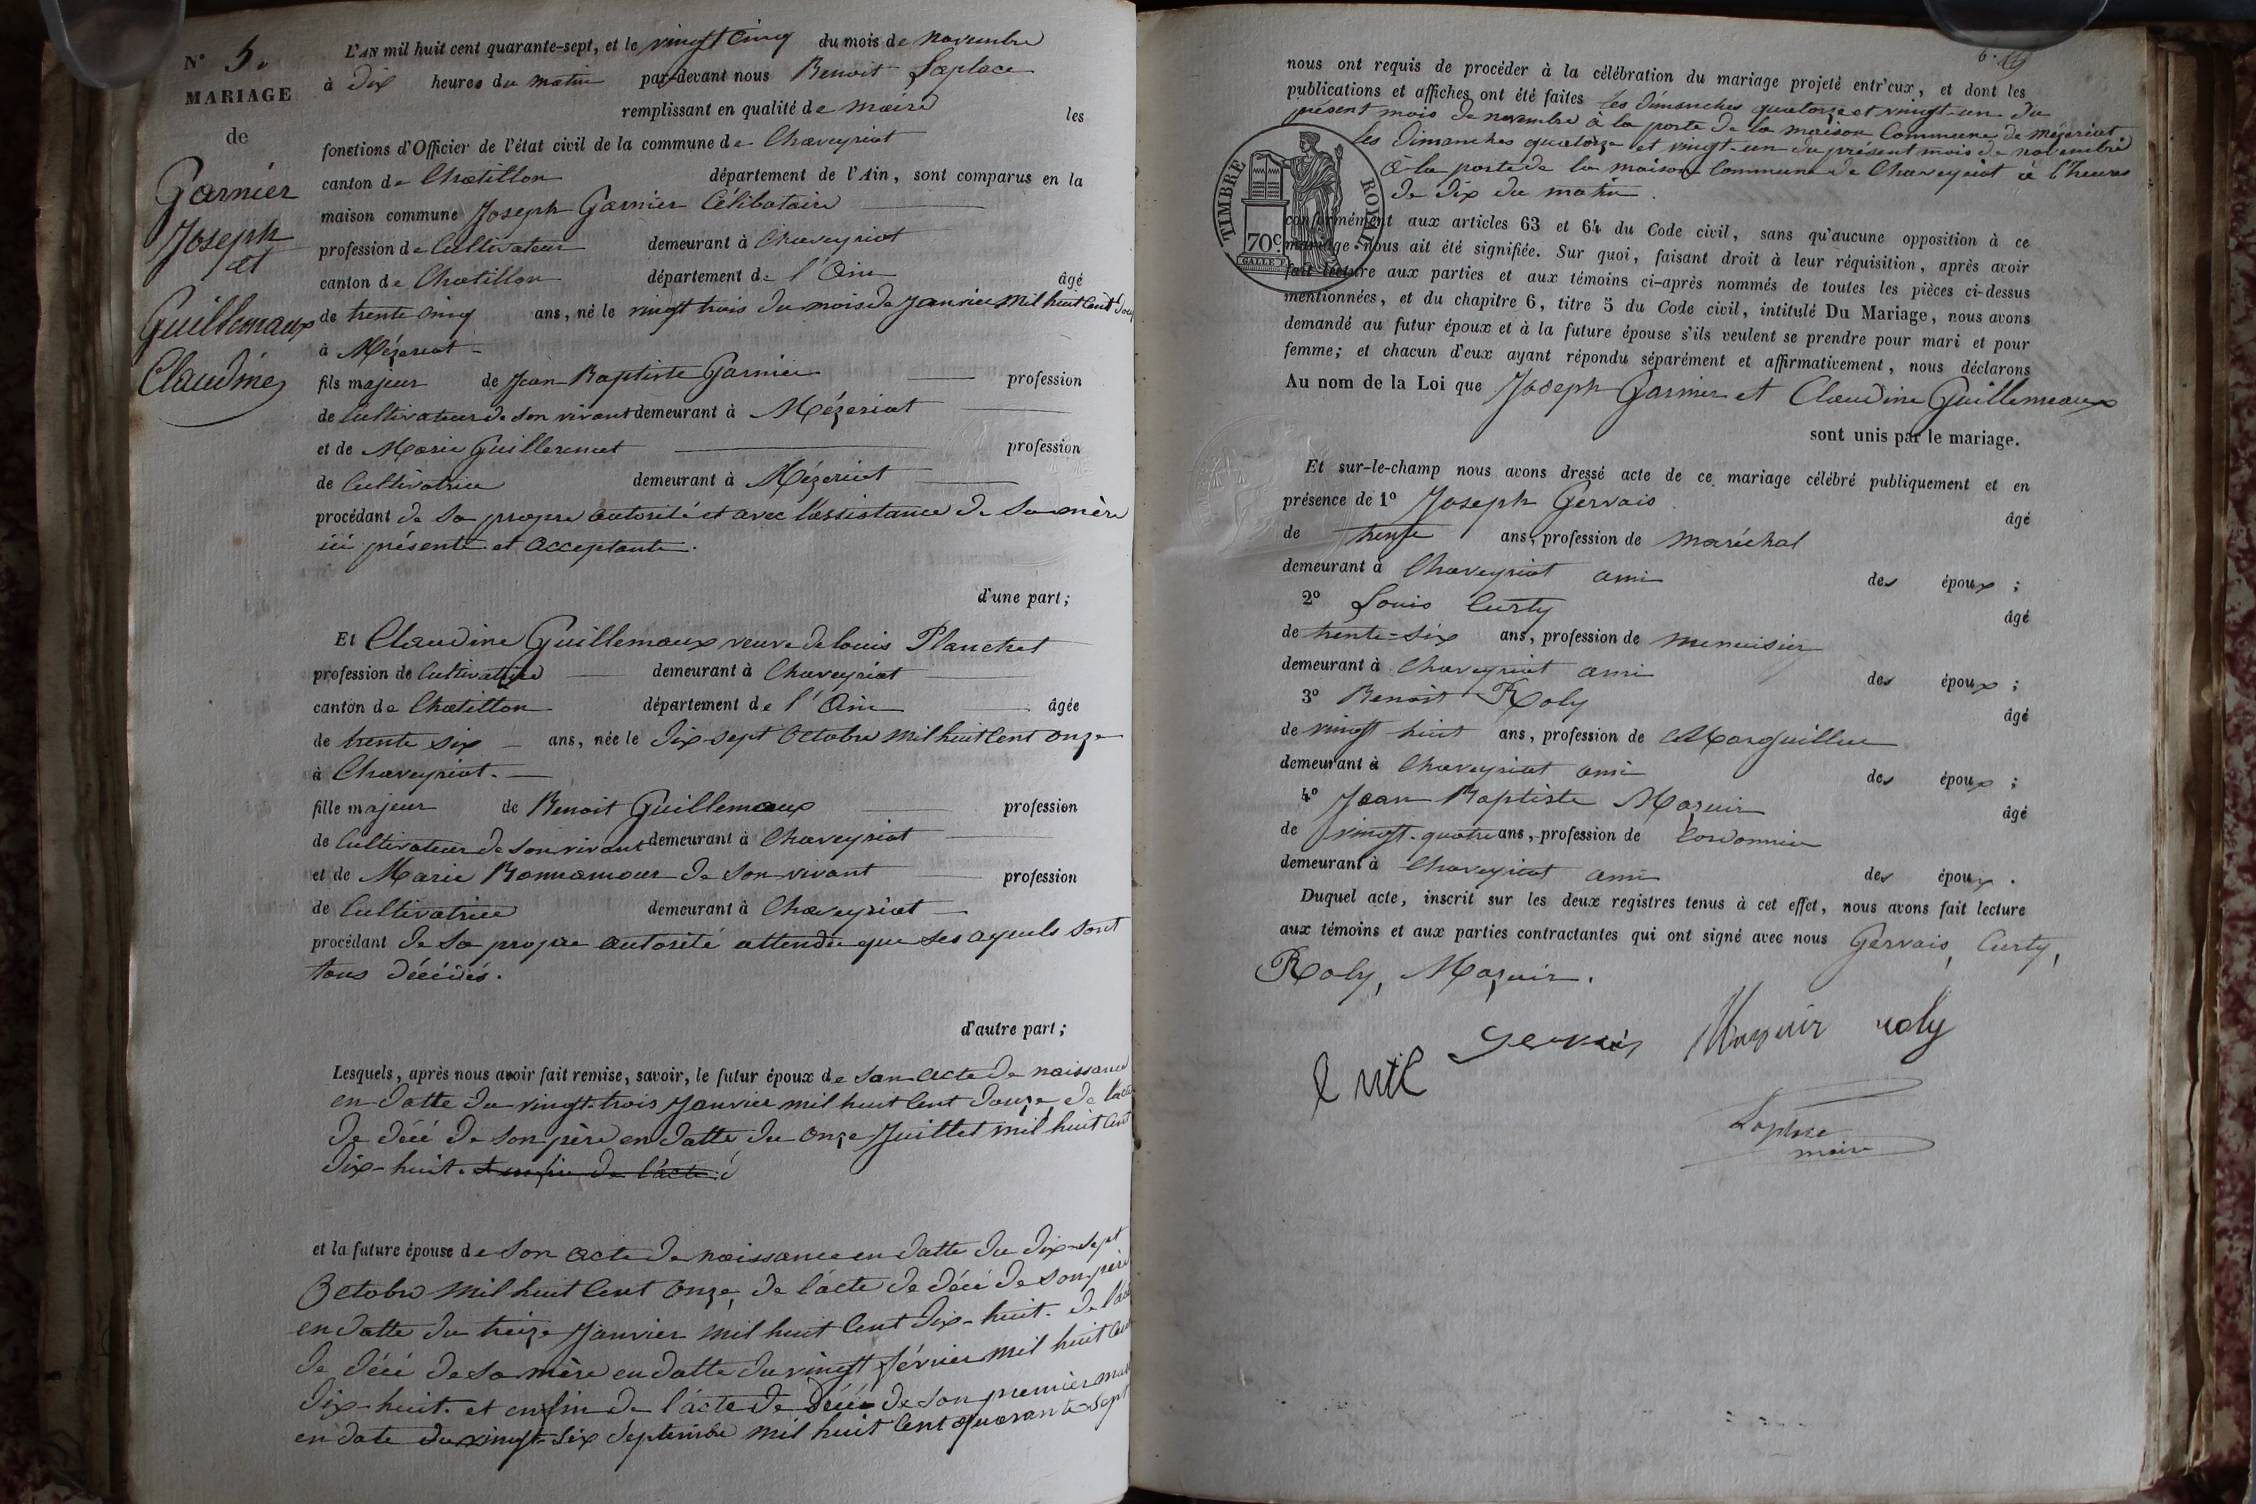 N° 5.
MARIAGE
de
Garnier
Joseph
et
Guillemaux
Claudine
L'AN mil huit cent quarante-sept, et le vingt cinq du mois de novembre
à dix heures du matin par-devant nous Benoit Laplace
remplissant en qualité de maire les
fonctions d'Officier de l'état civil de la commune de Chaveyriat
canton de Chatillon département de l'Ain, sont comparus en la
maison commune Joseph Garnier Célibataire
profession de Cultivateur demeurant à Chaveyriat
canton de Chatillon département de l'Ain âgé
de trente cinq ans, né le vingt trois du mois de Janvier mil huit Cent douze
à Mézeriat
fils majeur de Jean Baptiste Garnier profession
de Cultivateur de son vivant demeurant à Mézeriat
et de Marie Guilleremet profession
de Cultivatrice demeurant à Mézeriat
procédant de sa propre autorité et avec l'assistance de sa mère
ici présente et acceptante.
d'une part;
Et Claudine Guillemaux veuve de Louis Planchet
profession de Cultivatrice demeurant à Chaveyriat
canton de Chatillon département de l'Ain âgée
de trente six ans, née le dix-sept Octobre mil huit Cent onze
à Chaveyriat.
fille majeur de Benoit Guillemaux profession
de Cultivateur de son vivant demeurant à Chaveyriat
et de Marie Bonnamour de son vivant profession
de Cultivatrice demeurant à Chaveyriat
procédant de sa propre autorité attendu que ses ayeuls sont
tous décédés.
d'autre part;
Lesquels, après nous avoir fait remise, savoir, le futur époux de son acte de naissance
en datte du vingt-trois Janvier mil huit Cent douze, de l'acte
de décé de son père en datte du onze Juillet mil huit Cent
dix-huit. et enfin de l'acte d
et la future épouse de son acte de naissance en datte du dix-sept
Octobre mil huit Cent onze, de l'acte de décé de son père
en datte du treize Janvier mil huit Cent dix-huit. de l'acte
de décé de sa mère en datte du vingt février mil huit Cent
dix-huit. et enfin de l'acte de décé de son premier mari
en date du vingt-six Septembre mil huit Cent quarante sept
nous ont requis de procéder à la célébration du mariage projeté entr'eux, et dont les
publications et affiches ont été faites les dimanches quatorze et vingt-un du
présent mois de novembre à la porte de la maison Commune de Mézeriat
les dimanches quatorze et vingt-un du présent mois de novembre
à la porte de la maison Commune de Chaveyriat à l'heure
de dix du matin.
TIMBRE ROYAL
70c
conformément aux articles 63 et 64 du Code civil, sans qu'aucune opposition à ce
mariage nous ait été signifiée. Sur quoi, faisant droit à leur réquisition, après avoir
fait lecture aux parties et aux témoins ci-après nommés de toutes les pièces ci-dessus
mentionnées, et du chapitre 6, titre 5 du Code civil, intitulé Du Mariage, nous avons
demandé au futur époux et à la future épouse s'ils veulent se prendre pour mari et pour
femme; et chacun d'eux ayant répondu séparément et affirmativement, nous déclarons
Au nom de la Loi que Joseph Garnier et Claudine Guillemeaux
sont unis par le mariage.
Et sur-le-champ nous avons dressé acte de ce mariage célébré publiquement et en
présence de 1° Joseph Gervais âgé
de trente ans, profession de maréchal
demeurant à Chaveyriat ami des époux;
2° Louis Curty âgé
de trente-six ans, profession de menuisier
demeurant à Chaveyriat ami des époux;
3° Benoit Roly âgé
de vingt huit ans, profession de Marguillier
demeurant à Chaveyriat ami des époux;
4° Jean Baptiste Mazuir âgé
de vingt-quatre ans, profession de Cordonnier
demeurant à Chaveyriat ami des époux.
Duquel acte, inscrit sur les deux registres tenus à cet effet, nous avons fait lecture
aux témoins et aux parties contractantes qui ont signé avec nous Gervais, Curty,
Roly, Mazuir.
Gervais Mazuir roly
Laplace
maire